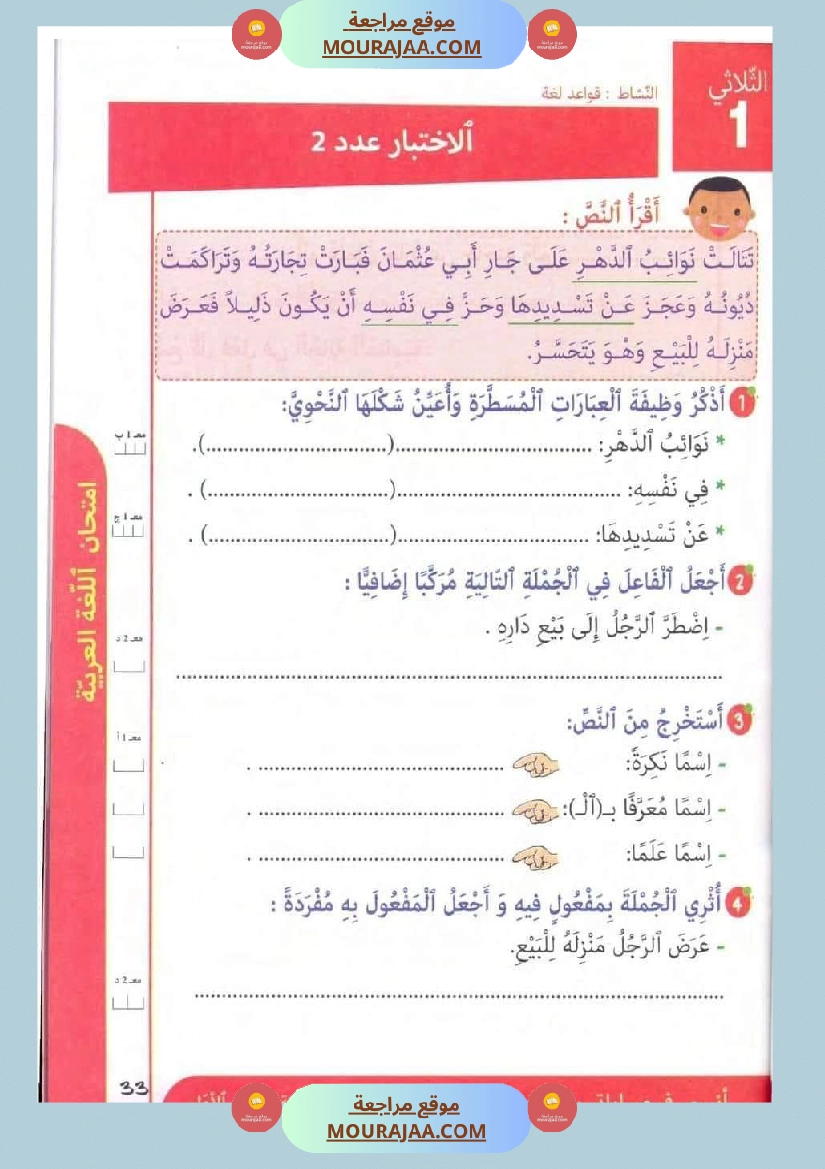 موقع مراجعة
MOURAJAA.COM
الثّلاثي
1
النّشاط : قواعد لغة
ٱلاختبار عدد 2
أَقْرَأُ ٱلنَّصَّ :
تَتَالَـتْ نَوَائِـبُ ٱلدَّهْـرِ عَلَـى جَـارِ أَبِـي عُثْمَـانَ فَبَـارَتْ تِجَارَتُـهُ وَتَرَاكَمَـتْ
دُيُونُـهُ وَعَجَـزَ عَـنْ تَسْـدِيدِهَا وَحَـزَّ فِـي نَفْسِـهِ أَنْ يَكُـونَ ذَلِيـلاً فَعَـرَضَ
مَنْزِلَـهُ لِلْبَيْـعِ وَهْـوَ يَتَحَسَّـرُ.
1 أَذْكُرُ وَظِيفَةَ ٱلْعِبَارَاتِ ٱلْمُسَطَّرَةِ وَأُعَيِّنُ شَكْلَهَا ٱلنَّحْوِيَّ:
* نَوَائِبُ ٱلدَّهْرِ: ....................................(.................................).
معـ 1 ب
* فِي نَفْسِهِ: .........................................(.................................) .
معـ 1 ج
* عَنْ تَسْدِيدِهَا: ...................................(.................................) .
2 أَجْعَلُ ٱلْفَاعِلَ فِي ٱلْجُمْلَةِ ٱلتّالِيَةِ مُرَكَّبًا إِضَافِيًّا :
- اِضْطَرَّ ٱلرَّجُلُ إِلَى بَيْعِ دَارِهِ .
معـ 2 د
....................................................................................................
3 أَسْتَخْرِجُ مِنَ ٱلنَّصِّ:
معـ 1 أ
- اِسْمًا نَكِرَةً: ............................................. .
- اِسْمًا مُعَرَّفًا بـ(ٱلْـ): ............................................. .
- اِسْمًا عَلَمًا: ............................................. .
4 أُثْرِي ٱلْجُمْلَةَ بِمَفْعُولٍ فِيهِ وَ أَجْعَلُ ٱلْمَفْعُولَ بِهِ مُفْرَدَةً :
- عَرَضَ ٱلرَّجُلُ مَنْزِلَهُ لِلْبَيْعِ.
معـ 2 د
.................................................................................................
امتحان ٱللّغة العربيّة
33
موقع مراجعة
MOURAJAA.COM